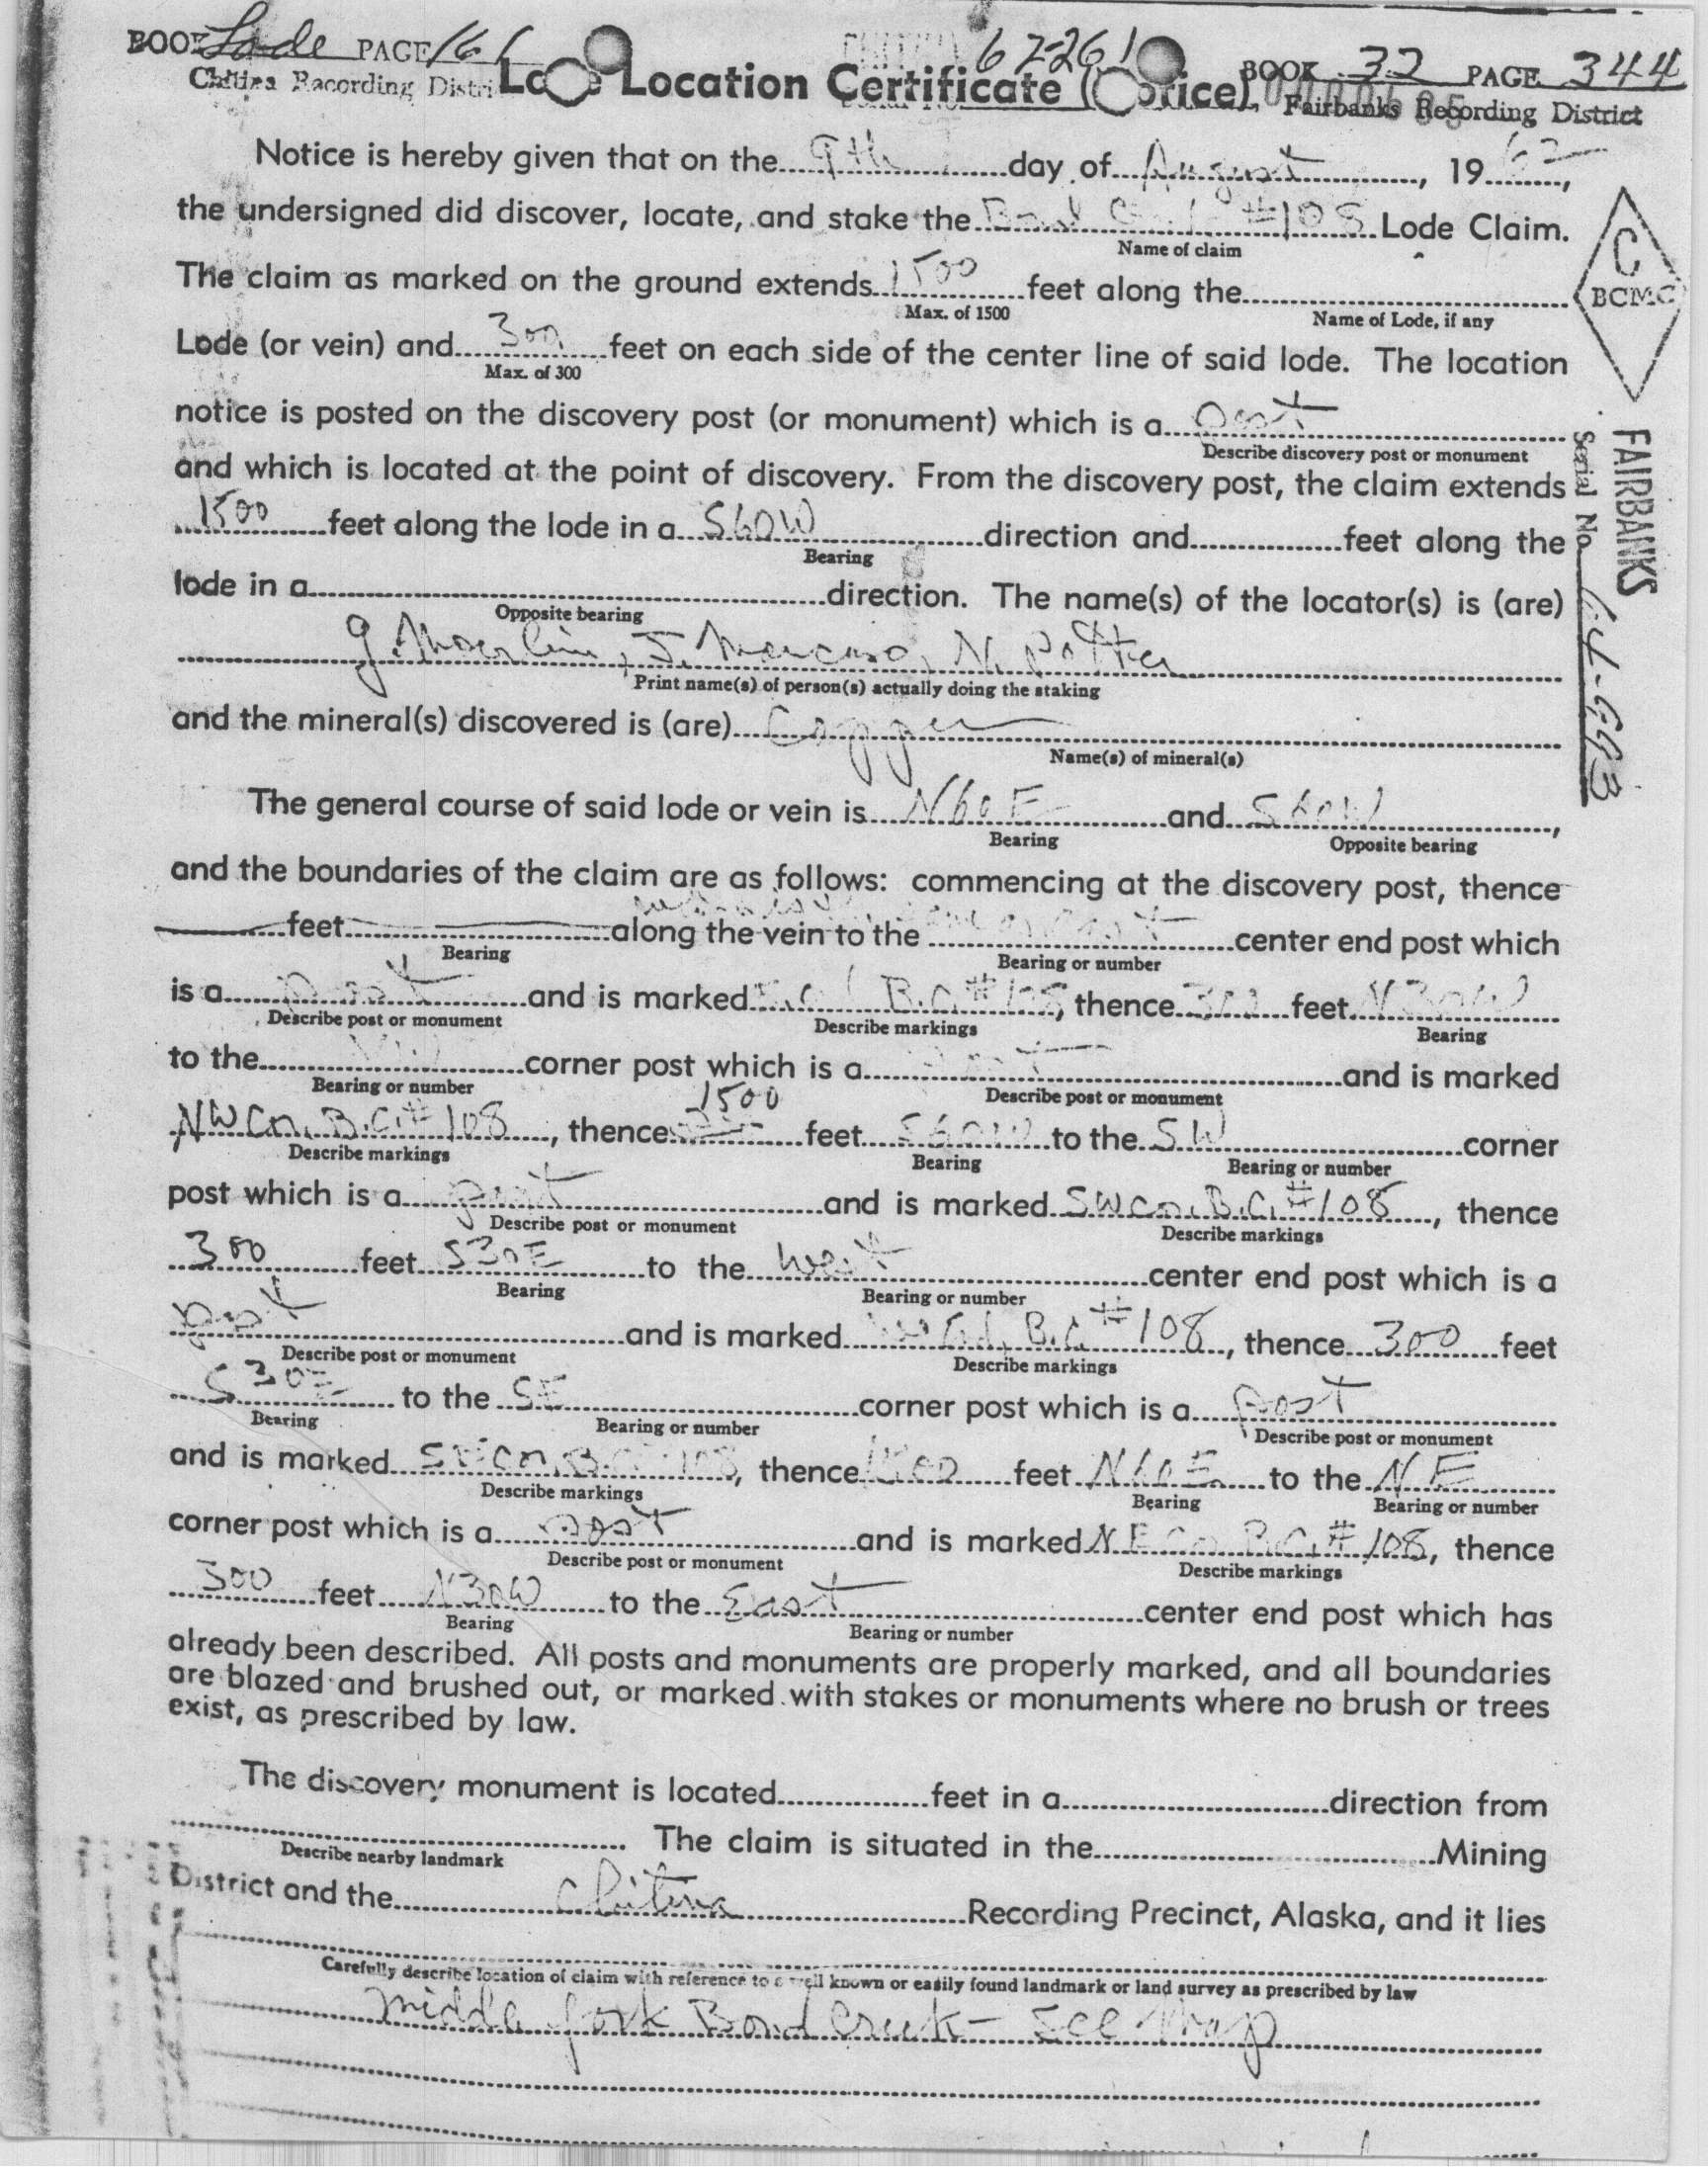 BOOK Lode PAGE 161
Chitina Recording District
62-261
BOOK 32 PAGE 344
Fairbanks Recording District
Lode Location Certificate (Notice)
Notice is hereby given that on the 9th day of August, 1962,
the undersigned did discover, locate, and stake the Bond Creek #108 Lode Claim.
Name of claim
The claim as marked on the ground extends 1500 feet along the
Max. of 1500 Name of Lode, if any
C
BCMC
Lode (or vein) and 300 feet on each side of the center line of said lode. The location
Max. of 300
notice is posted on the discovery post (or monument) which is a post
Describe discovery post or monument
and which is located at the point of discovery. From the discovery post, the claim extends
1500 feet along the lode in a S60W direction and feet along the
Bearing
FAIRBANKS
Serial No.
lode in a direction. The name(s) of the locator(s) is (are)
Opposite bearing
N. Potter
Print name(s) of person(s) actually doing the staking
and the mineral(s) discovered is (are) Copper
Name(s) of mineral(s)
The general course of said lode or vein is N60E and S60W,
Bearing Opposite bearing
and the boundaries of the claim are as follows: commencing at the discovery post, thence
feet along the vein to the center end post which
Bearing Bearing or number
is a post and is marked B.C. #108, thence 300 feet N30W
Describe post or monument Describe markings Bearing
to the NW corner post which is a post and is marked
Bearing or number Describe post or monument
NW Cn. B.C. #108, thence 1500 feet S60W to the SW corner
Describe markings Bearing Bearing or number
post which is a post and is marked SW Cn. B.C. #108, thence
Describe post or monument Describe markings
300 feet S30E to the West center end post which is a
Bearing Bearing or number
post and is marked B.C. #108, thence 300 feet
Describe post or monument Describe markings
S30E to the SE corner post which is a post
Bearing Bearing or number Describe post or monument
and is marked SE Cn. B.C. #108, thence 1500 feet N60E to the NE
Describe markings Bearing Bearing or number
corner post which is a post and is marked NE Cn. B.C. #108, thence
Describe post or monument Describe markings
300 feet N30W to the East center end post which has
Bearing Bearing or number
already been described. All posts and monuments are properly marked, and all boundaries
are blazed and brushed out, or marked with stakes or monuments where no brush or trees
exist, as prescribed by law.
The discovery monument is located feet in a direction from
The claim is situated in the Mining
Describe nearby landmark
District and the Chitina Recording Precinct, Alaska, and it lies
Carefully describe location of claim with reference to a well known or easily found landmark or land survey as prescribed by law
Middle fork Bond Creek - See Map